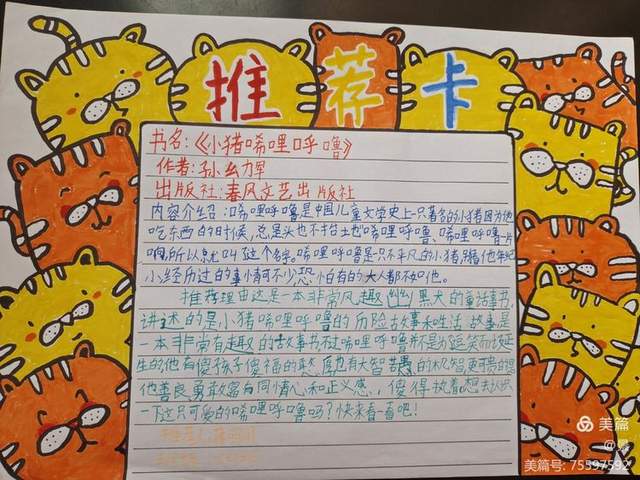 推荐卡
书名:《小猪唏哩呼噜》
作者:孙幺力军
出版社:春风文艺出版社
内容介绍:唏哩呼噜是中国儿童文学史上一只著名的小猪因为他
吃东西的时候,总是头也不抬土也唏哩呼噜、唏哩呼噜一片
响,所以就叫这个名。唏哩呼噜是只不平凡的小猪,别看他年纪
小经历过的事情可不少恐怕有的大人都不如他。
推荐理由这是一本非常风趣幽默的童话书,
讲述的是小猪唏哩呼噜的历险故事和生活故事是
一本非常有趣的故事书不过唏哩呼噜并不是为逗笑而故
生的他有傻孩子傻福的憨厚也有大智若愚的机智更可贵的是
他善良勇敢富有同情心和正义感,傻得执着想去认识
一下这只可爱的唏哩呼噜吗?快来看一看吧!
美篇
美篇号: 75597592